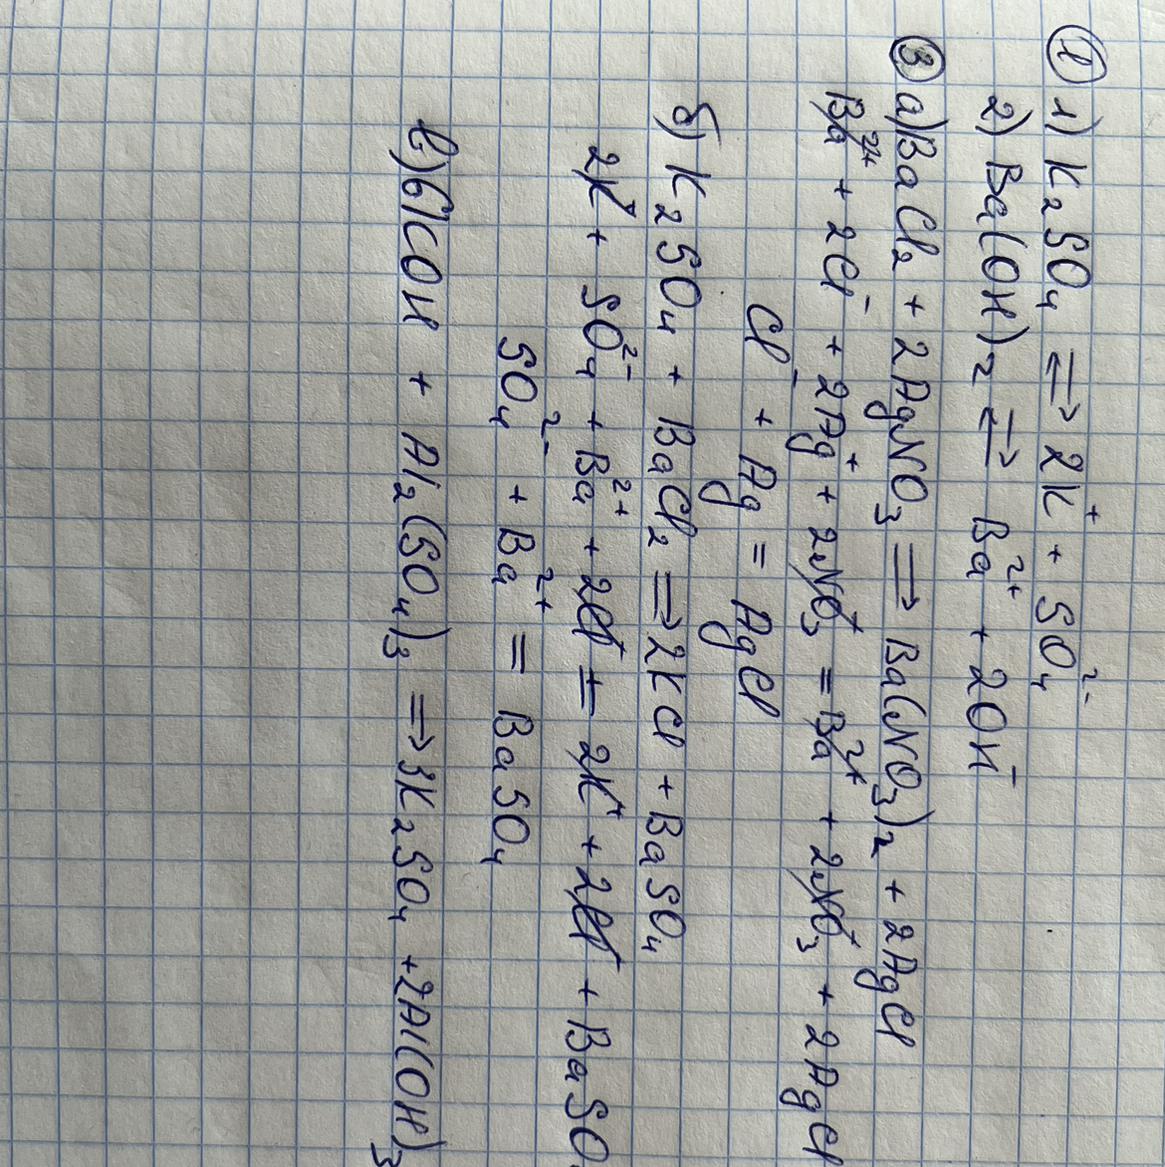 ① 1) K₂SO₄ ⇒ 2K⁺ + SO₄²⁻
2) Ba(OH)₂ ⇒ Ba²⁺ + 2OH⁻
③ а) BaCl₂ + 2AgNO₃ ⇒ Ba(NO₃)₂ + 2AgCl
Ba²⁺ + 2Cl⁻ + 2Ag⁺ + 2NO₃ = Ba²⁺ + 2NO₃ + 2AgCl
Cl⁻ + Ag = AgCl
б) K₂SO₄ + BaCl₂ ⇒ 2KCl + BaSO₄
2K⁺ + SO₄²⁻ + Ba²⁺ + 2Cl = 2K⁺ + 2Cl + BaSO
SO₄²⁻ + Ba²⁺ = BaSO₄
в) + Al₂(SO₄)₃ ⇒ 3K₂SO₄ + 2Al(OH)₃